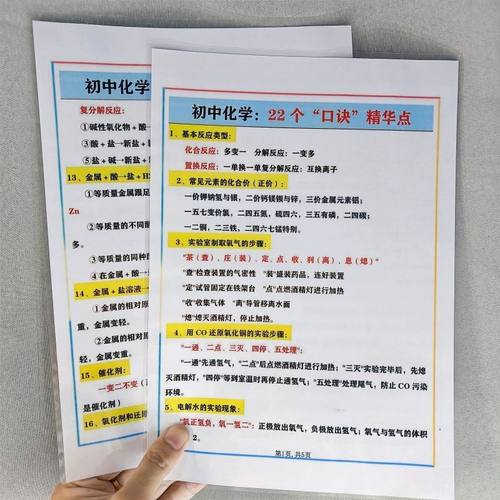 初中化学
复分解反应:
①碱性氧化物+酸→
③酸+盐→新盐+新
⑤盐+碱→新盐+
13、金属+酸→盐+H
①等质量金属跟足
Zn
②等质量的不同酸
多。
③等质量的同种酸
④在金属+酸→
14、金属+盐溶液→
①金属的相对原
重,金属变轻。
②金属的相对原
轻,金属变重。
15、催化剂:
一变二不变(
是催化剂)
16、氧化剂和还原
初中化学:22个“口诀”精华点
1、基本反应类型:
化合反应:多变一 分解反应:一变多
置换反应:一单换一单复分解反应:互换离子
2、常见元素的化合价(正价):
一价钾钠氢与银,二价钙镁钡与锌,三价金属元素铝;
一五七变价氯,二四五氮,硫四六,三五有磷,二四碳;
一二铜,二三铁,二四六七锰特别。
3、实验室制取氧气的步骤:
“茶(查)、庄(装)、定、点、收、利(离)、息(熄)”
“查”检查装置的气密性 “装”盛装药品,连好装置
“定”试管固定在铁架台 “点”点燃酒精灯进行加热
“收”收集气体 “离”导管移离水面
“熄”熄灭酒精灯,停止加热。
4、用CO还原氧化铜的实验步骤:
“一通、二点、三灭、四停、五处理”:
“一通”先通氢气,“二点”后点燃酒精灯进行加热;“三灭”实验完毕后,先熄
灭酒精灯,“四停”等到室温时再停止通氢气;“五处理”处理尾气,防止CO污染
环境。
5、电解水的实验现象:
“氧正氢负,氧一氢二”:正极放出氧气,负极放出氢气;氧气与氢气的体积
2。
第1页,共5页